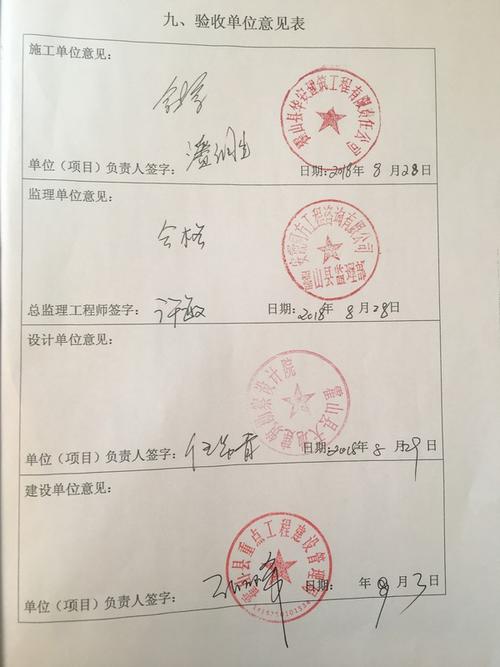 九、验收单位意见表
施工单位意见：
合格
霍山县华安建筑工程有限责任公司
单位（项目）负责人签字：
日期：2018年 8 月 28 日
监理单位意见：
合格
工程咨询有限公司
总监理工程师签字：许敏
日期：2018年 8 月 28 日
设计单位意见：
霍山县大地建筑勘察设计院
单位（项目）负责人签字：
日期：2018年 8 月 29 日
建设单位意见：
霍山县重点工程建设管理
单位（项目）负责人签字：
日期： 年 9 月 3 日